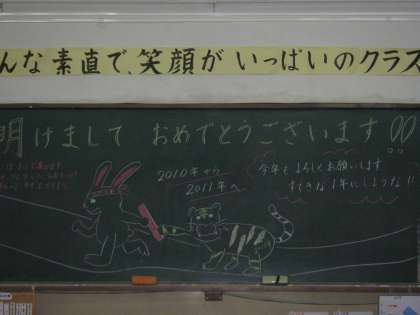 んな素直で、笑顔がいっぱいのクラス
明けまして おめでとうございます!!
2010年から
2011年へ
今年もよろしくお願いします
すてきな1年にしような!!